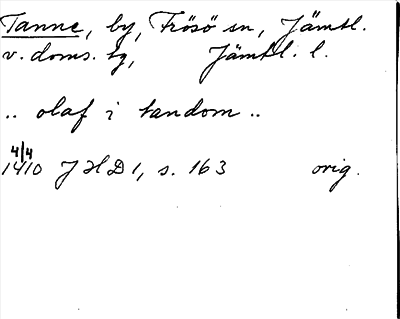 Tanne, by, Frösö sn, Jämtl.
v. doms. tg, Jämtl. l.
.. olaf i tandom ..
4/4
1410 JHD 1, s. 163 orig.